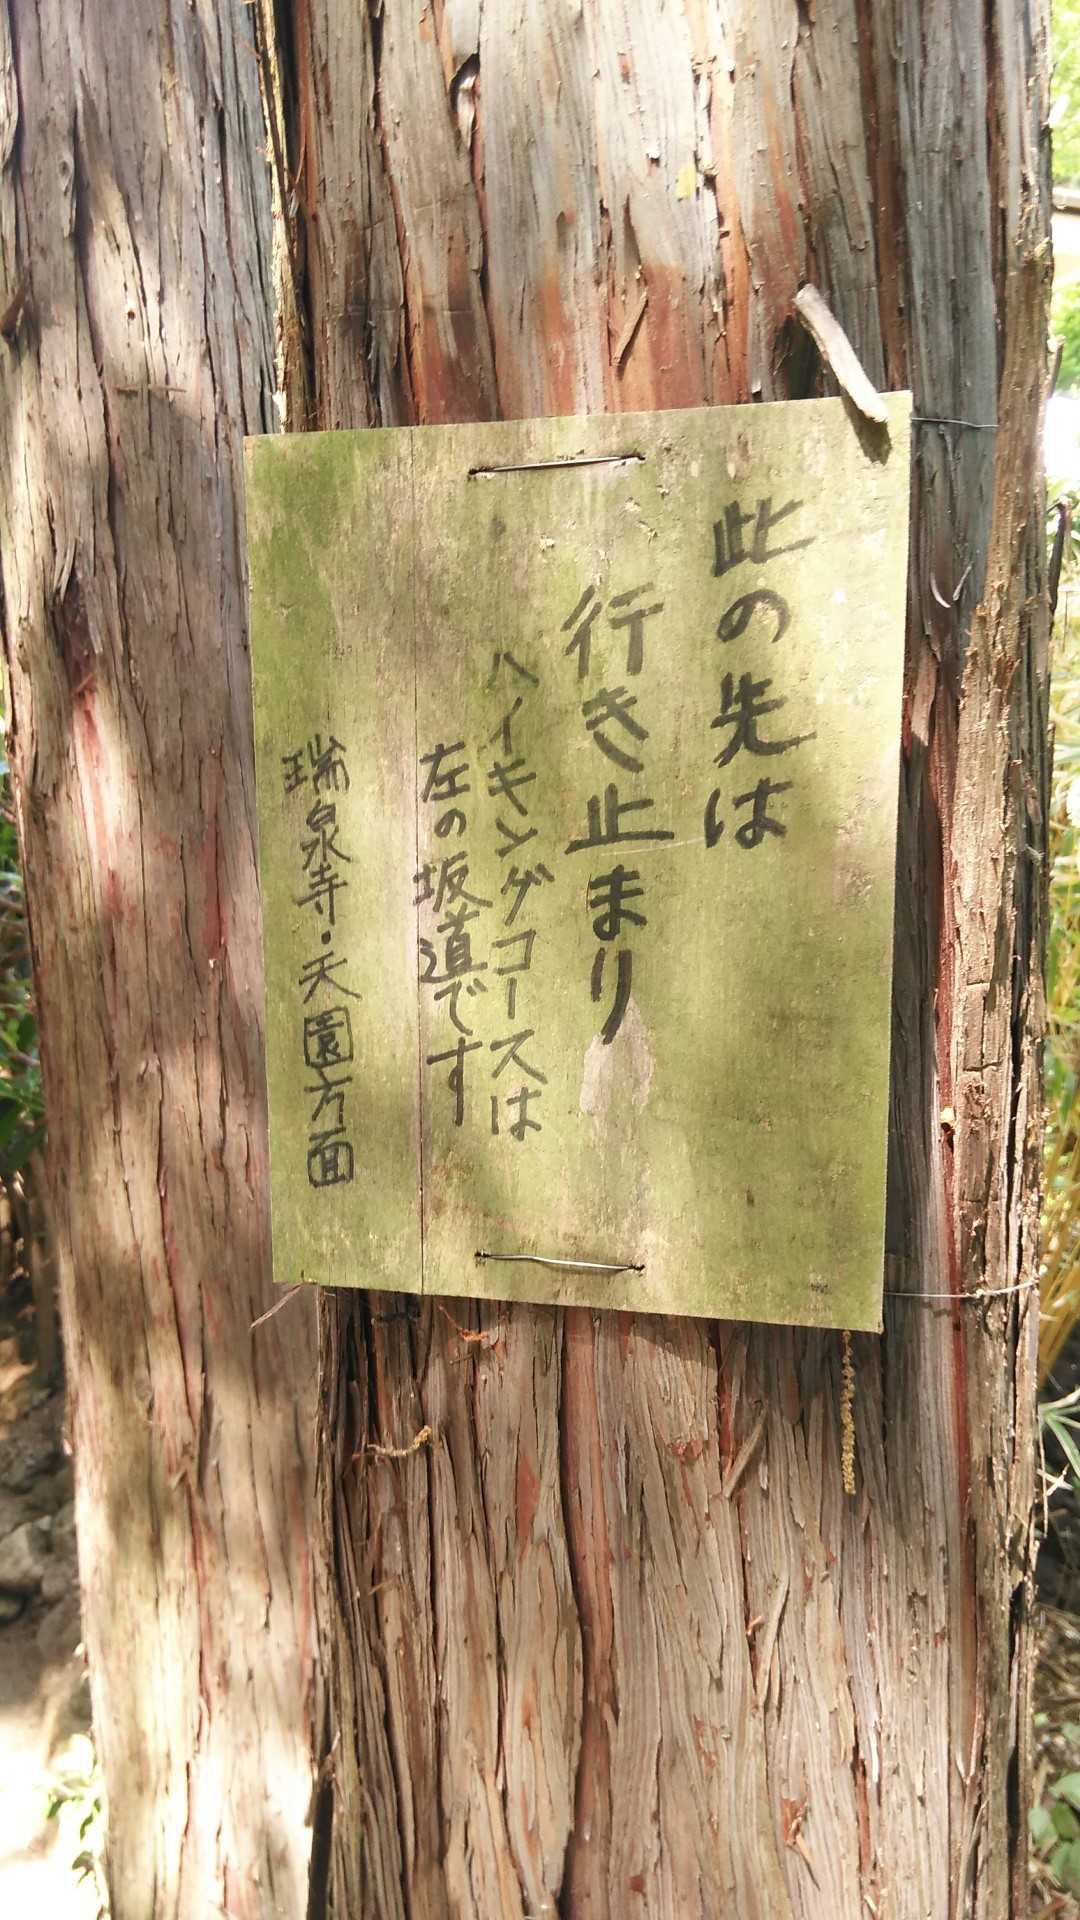 此の先は
行き止まり
ハイキングコースは
左の坂道です
瑞泉寺・天園方面